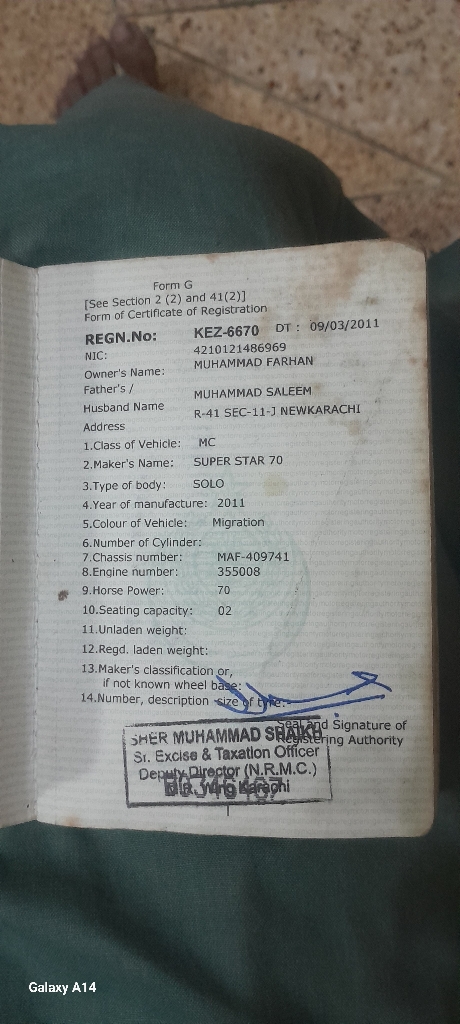 Form G
[See Section 2 (2) and 41(2)]
Form of Certificate of Registration
REGN.No: KEZ-6670 DT : 09/03/2011
NIC: 4210121486969
Owner's Name: MUHAMMAD FARHAN
Father's /
Husband Name MUHAMMAD SALEEM
Address R-41 SEC-11-J NEWKARACHI
1.Class of Vehicle: MC
2.Maker's Name: SUPER STAR 70
3.Type of body: SOLO
4.Year of manufacture: 2011
5.Colour of Vehicle: Migration
6.Number of Cylinder:
7.Chassis number: MAF-409741
8.Engine number: 355008
9.Horse Power: 70
10.Seating capacity: 02
11.Unladen weight:
12.Regd. laden weight:
13.Maker's classification or,
if not known wheel base:
14.Number, description size of tyre:-
Seal and Signature of
Registering Authority
SHER MUHAMMAD SHAIKH
Sr. Excise & Taxation Officer
Deputy Director (N.R.M.C.)
M.R. Wing Karachi
Galaxy A14